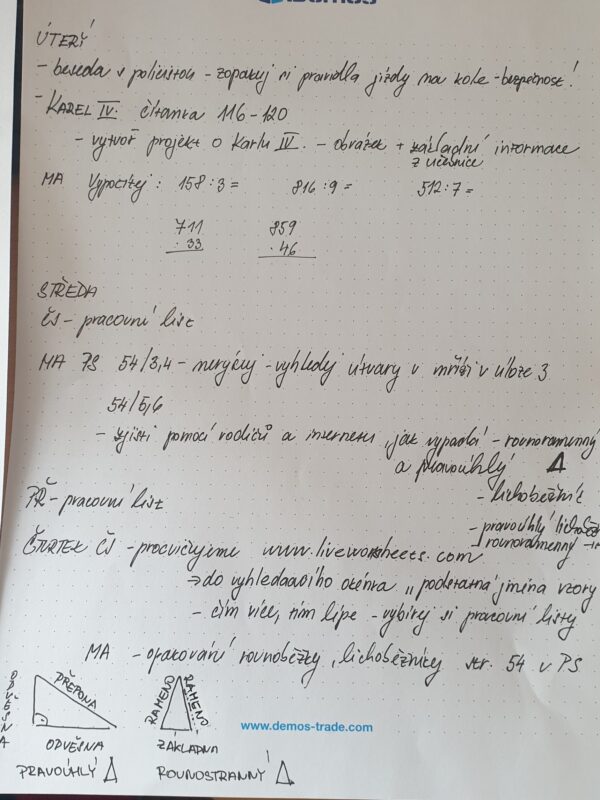 Demos
ÚTERÝ
- beseda s policistou - zopakuj si pravidla jízdy na kole - bezpečnost!
- KAREL IV. čítanka 116 - 120
- vytvoř projekt o Karlu IV. - obrázek + základní informace
z učebnice
MA Vypočítej : 158 : 3 = 816 : 9 = 512 : 7 =
711 859
. 33 . 46
STŘEDA
ČS - pracovní list
MA PS 54/3,4 - nerýsuj - vyhledej útvary v mříži v úloze 3
54/5,6
- zjisti pomocí rodičů a internetu, jak vypadá - rovnoramenný
a pravoúhlý Δ
- lichoběžník
- pravoúhlý
PŘ - pracovní list
- rovnoramenný
ČTVRTEK ČS - procvičujeme www.liveworksheets.com
→ do vyhledávacího okénka „podstatná jména vzory
- čím více, tím lépe - vybírej si pracovní listy
MA - opakování rovnoběžky, lichoběžníky str. 54 v PS
ODVĚSNA PŘEPONA RAMENO RAMENO
www.demos-trade.com
ODVĚSNA ZÁKLADNA
PRAVOÚHLÝ Δ ROVNOSTRANNÝ Δ